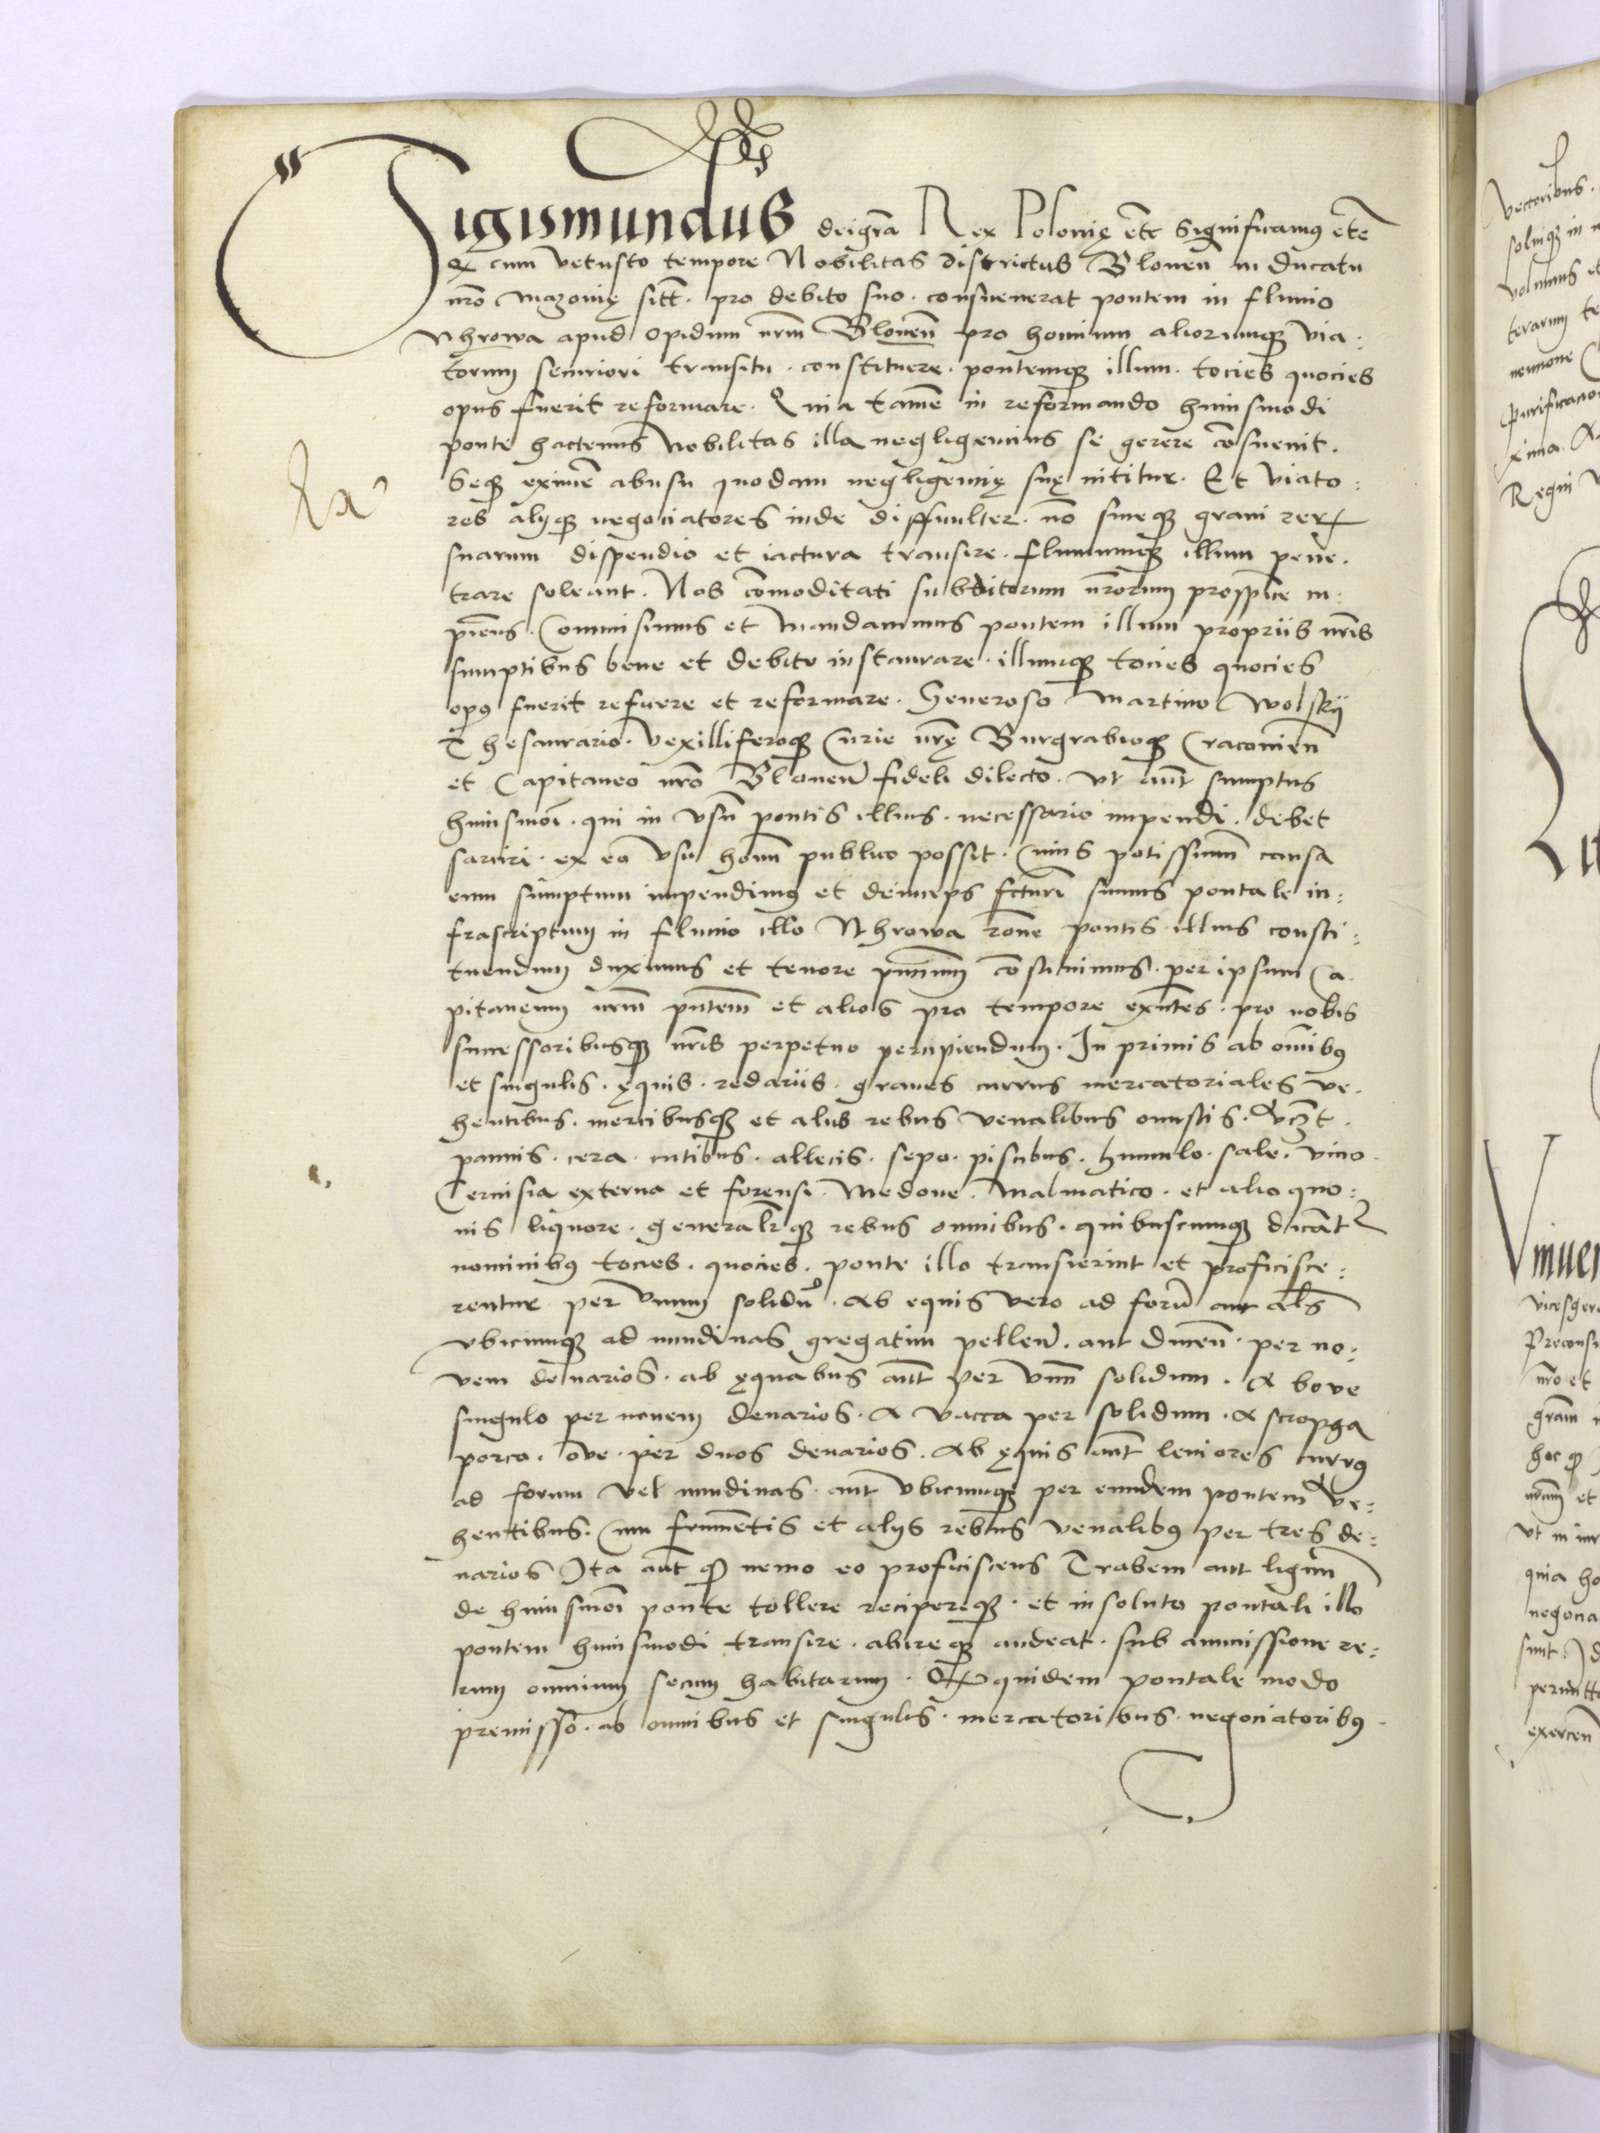 Sigismundus deigr̃a Rex Polonię etc̃ Significamus etc̃
Q cum vetusto tempore Nobilitas districtus Blonen̄ in Ducatu
nr̄o Mazovię sitt̄ . pro debito suo . consueverat pontem in fluvio
Vthrowa apud opidum nr̄m Blonen̄ pro hominum aliorumqꝫ via:
torum securiori transitu . constituere . pontemqꝫ illum . tocies quocies
opus fuerit reformare . Quia tamē in reformando huiusmodi
ponte hactenus Nobilitas illa negligencius se gerere cōsuevit .
Seqꝫ eximē abusu quodam negligencię suę nititur . Et viato:
res alijqꝫ negociatores inde difficulter . nō sineqꝫ gravi rerꝝ
suarum dispendio et iactura transire . fluviumqꝫ illum pene.
trare soleant . Nos cōmoditati subditorum nr̄orum prospicē cu.
piens . Commisimus et mandavimus pontem illum propriis nr̄is
sumptibus bene et debite instaurare . illumqꝫ tocies quocies
opꝰ fuerit reficere et reformare . Generoso Martino Wolskij
Thesaurario . vexilliferoqꝫ Curie nr̄ę Burgrabioqꝫ Cracovien̄
et Capitaneo nr̄o Blonen̄ fideli dilecto . Vt aut̄ sumptus
huiusmōi . qui in vsū pontis illius . necessario impendi . debet
sarciri . ex eo vsu homī publico possit . Cuius potissimū causa
eum sumptum impendimꝰ et deinceps fcturi sumus pontale in:
frascriptum in fluvio illo Vthrowa rōne pontis illius consti:
tuendum duximus et tenore pn̄tium cōstituimus . per ipsum Ca.
pitaneum nr̄m pn̄tem et alios pro tempore exn̄tes . pro nobis
successoribusqꝫ nr̄is perpetuo percipiendum . In primis ab om̄ibꝰ
et singulis . ęquis . redariis . graves currus mercatoriales ve.
hentibus . mercibusqꝫ et aliis rebus venalibus onustis . vcꝫt .
pannis . cera . cutibus . allecis . sepo . piscibus . humulo . sale . vino .
Cervisia externa et forensi . Medone . Malmatico . et alio quo:
vis liquore . generalr̄qꝫ rebus omnibus . quibuscumqꝫ dicāt̄
nominibꝰ tocies . quocies . ponte illo transierint et proficisce:
rentur per vnum solidū . Ab equis vero ad forū aut al̄s
vbicumqꝫ ad nundinas gregatim pellen̄ . aut ducen̄ . per no:
vem denarios . ab ęquabus aūt per vnū solidum . A bove
singulo per novem denarios . A vacca per solidum . A scropha
porco . ove . per duos denarios . Ab ęquis aūt leviores currꝰ
ad forum vel nundinas . aut vbicumqꝫ per eundem pontem ve:
hentibus . cum frumētis et alijs rebus venalibꝰ per tres de:
narios Ita aūt qꝫ nemo eo proficiscens Trabem aut lignū
de huiusmōi ponte tollere recipereqꝫ . et insoluto pontali illo
pontem huiusmodi transire . abireqꝫ audeat . sub ammissione re:
rum omnium secum habitarum . Qꝫ quidem pontale modo
premisso . ab omnibus et singulis . mercatoribus . negociatoribꝰ .